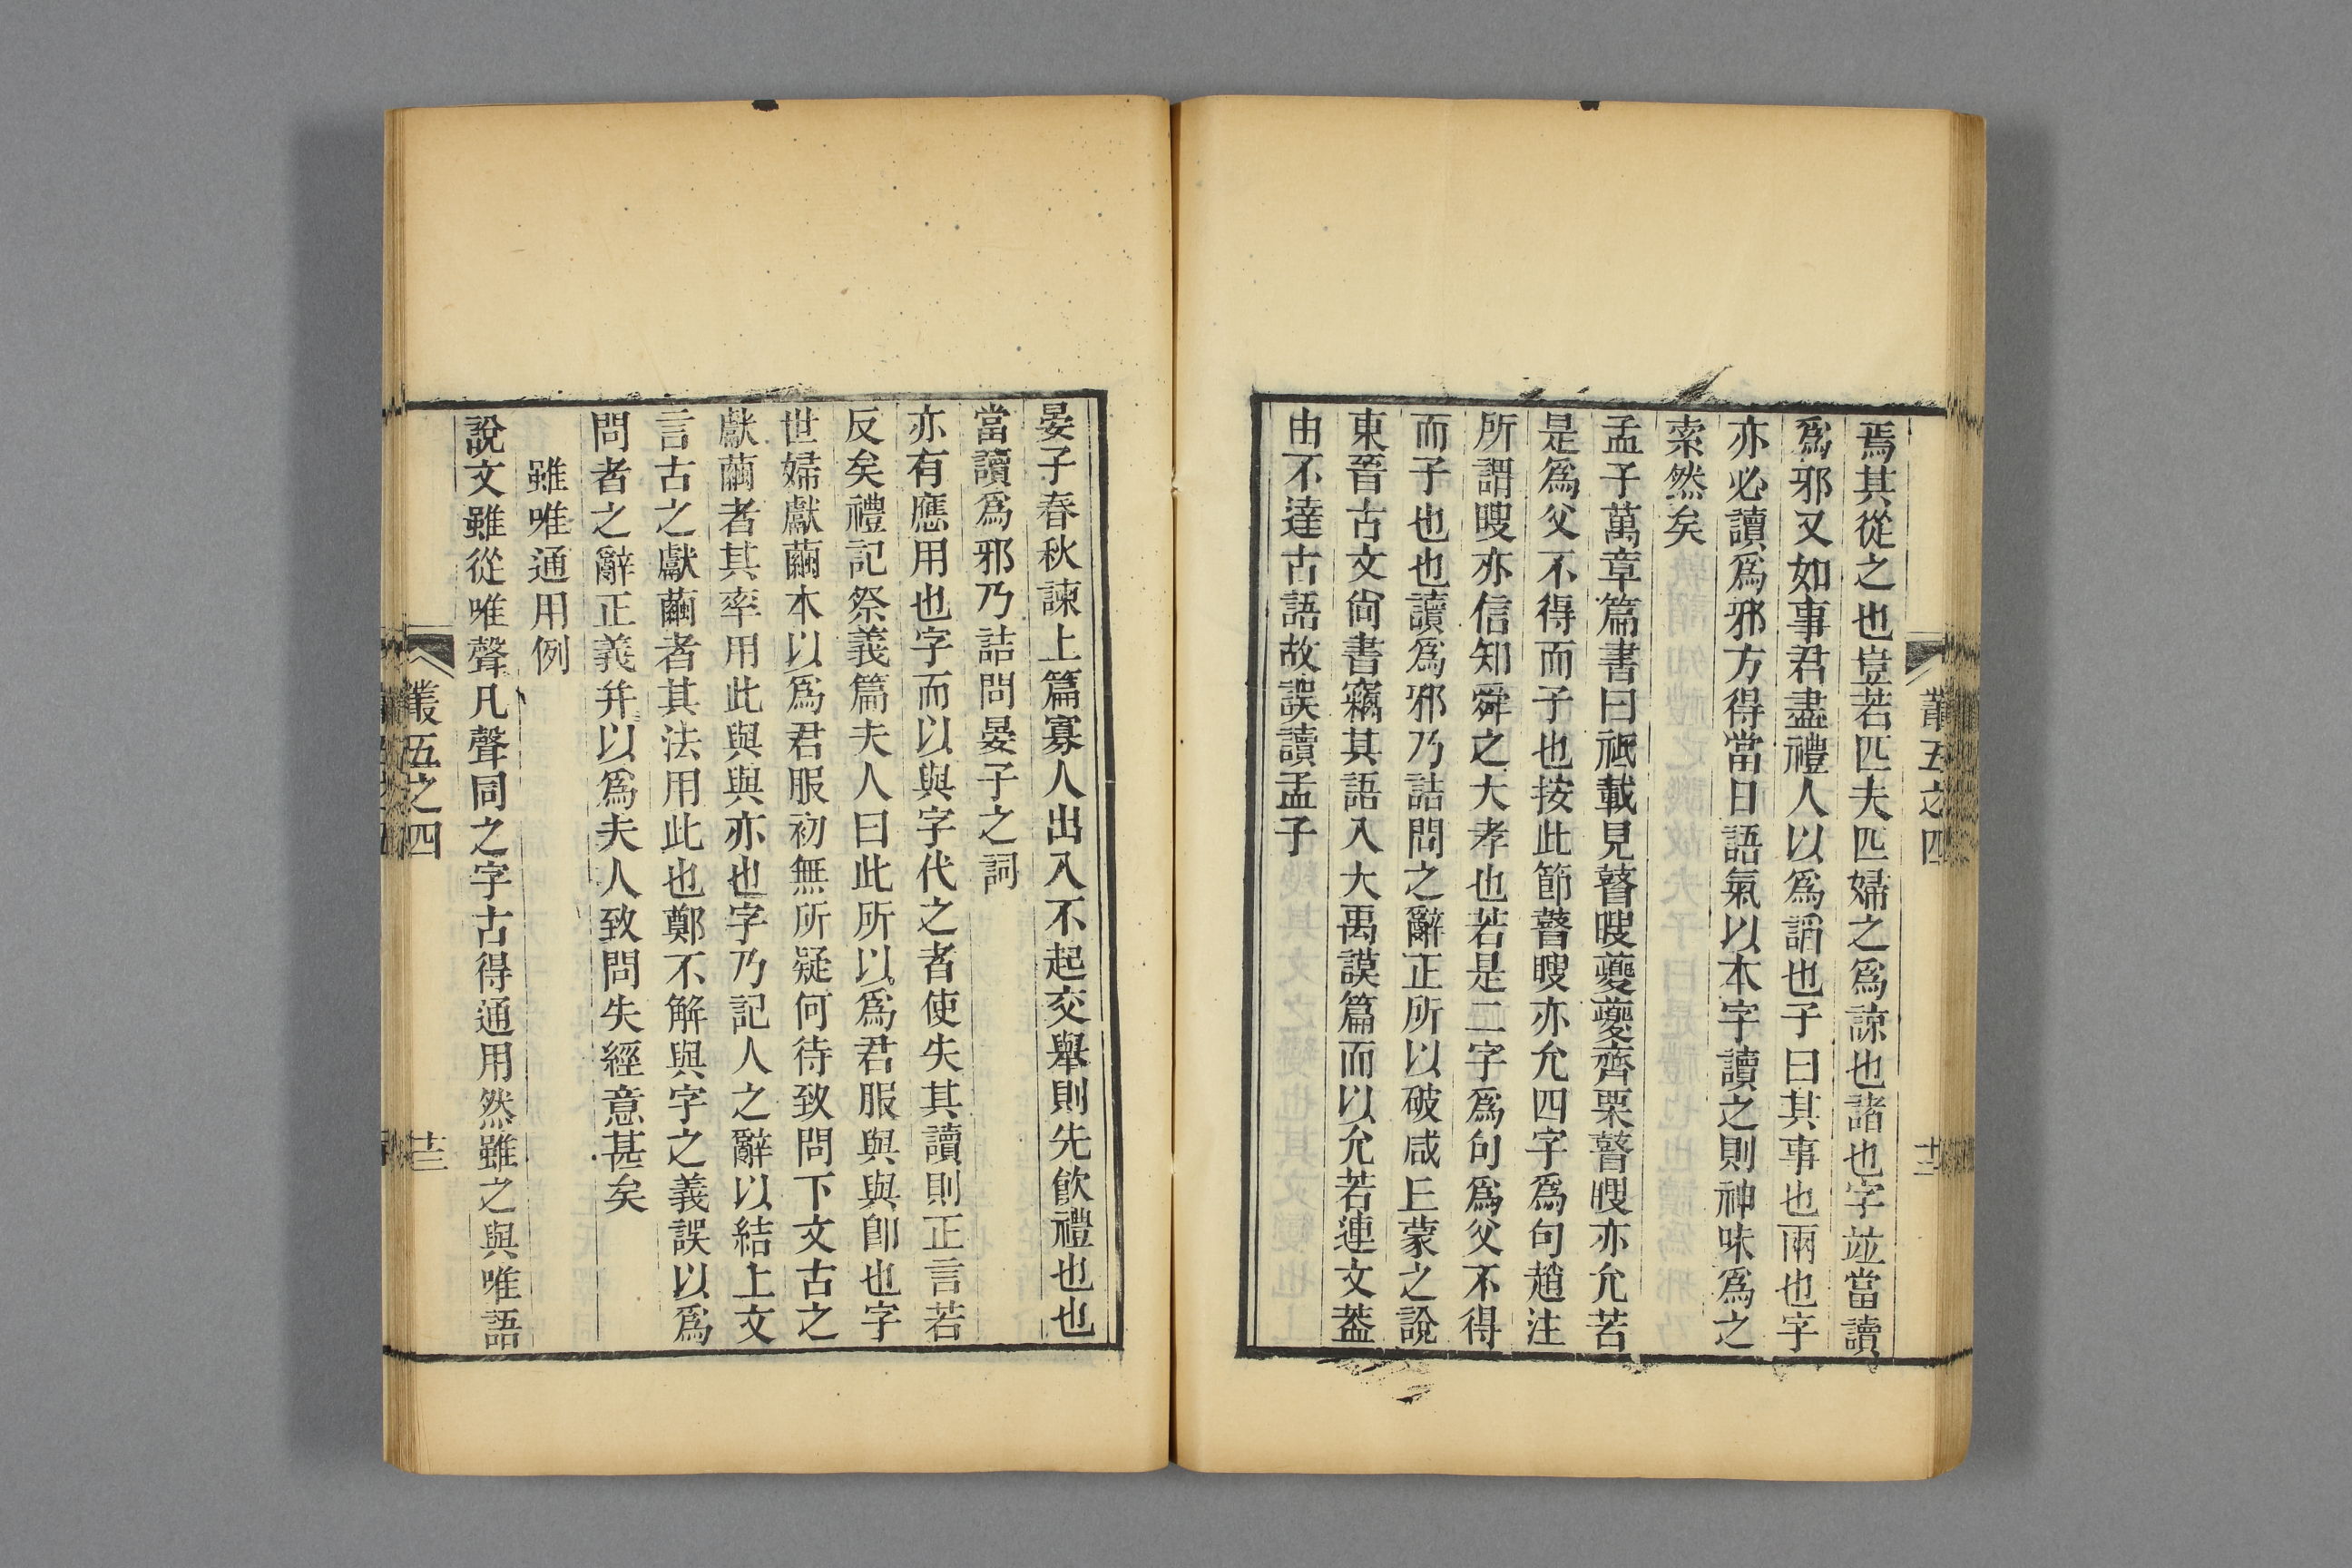 焉其從之也豈若匹夫匹婦之爲諒也諸也字並當讀
爲邪又如事君盡禮人以爲謟也子曰其事也兩也字
亦必讀爲邪方得當日語氣以本字讀之則神味爲之
索然矣
孟子萬章篇書曰祗載見瞽瞍夔夔齊栗瞽瞍亦允若
是爲父不得而子也按此節瞽瞍亦允四字爲句趙注
所謂瞍亦信知舜之大孝也若是二字爲句爲父不得
而子也也讀爲邪乃詰問之辭正所以破咸丘蒙之說
東晉古文尙書竊其語入大禹謨篇而以允若連文葢
由不達古語故誤讀孟子
叢五之四
十二
晏子春秋諫上篇寡人出入不起交舉則先飮禮也也
當讀爲邪乃詰問晏子之詞
亦有應用也字而以與字代之者使失其讀則正言若
反矣禮記祭義篇夫人曰此所以爲君服與與卽也字
世婦獻繭本以爲君服初無所疑何待致問下文古之
獻繭者其率用此與與亦也字乃記人之辭以結上文
言古之獻繭者其法用此也鄭不解與字之義誤以爲
問者之辭正義幷以爲夫人致問失經意甚矣
雖唯通用例
說文雖從唯聲凡聲同之字古得通用然雖之與唯語
叢五之四
十三